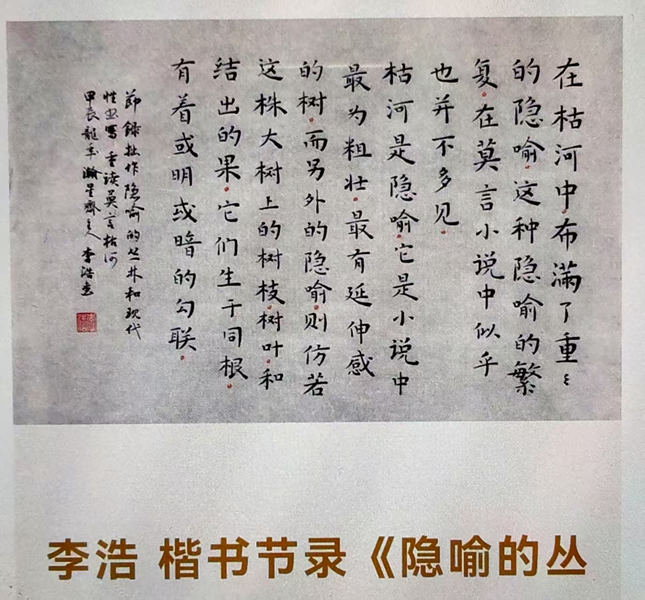 在枯河中，布满了重々
的隐喻。这种隐喻的繁
复，在莫言小说中似乎
也并不多见。
枯河是隐喻，它是小说中
最为粗壮，最有延伸感
的树，而另外的隐喻，则仿若
这株大树上的树枝，树叶和
结出的果，它们生于同根，
有着或明或暗的勾联。
節錄拙作隐喻的丛林和现代
性书写重读莫言枯河
甲辰龍年瀚星齋主人李浩
李浩 楷书节录《隐喻的丛